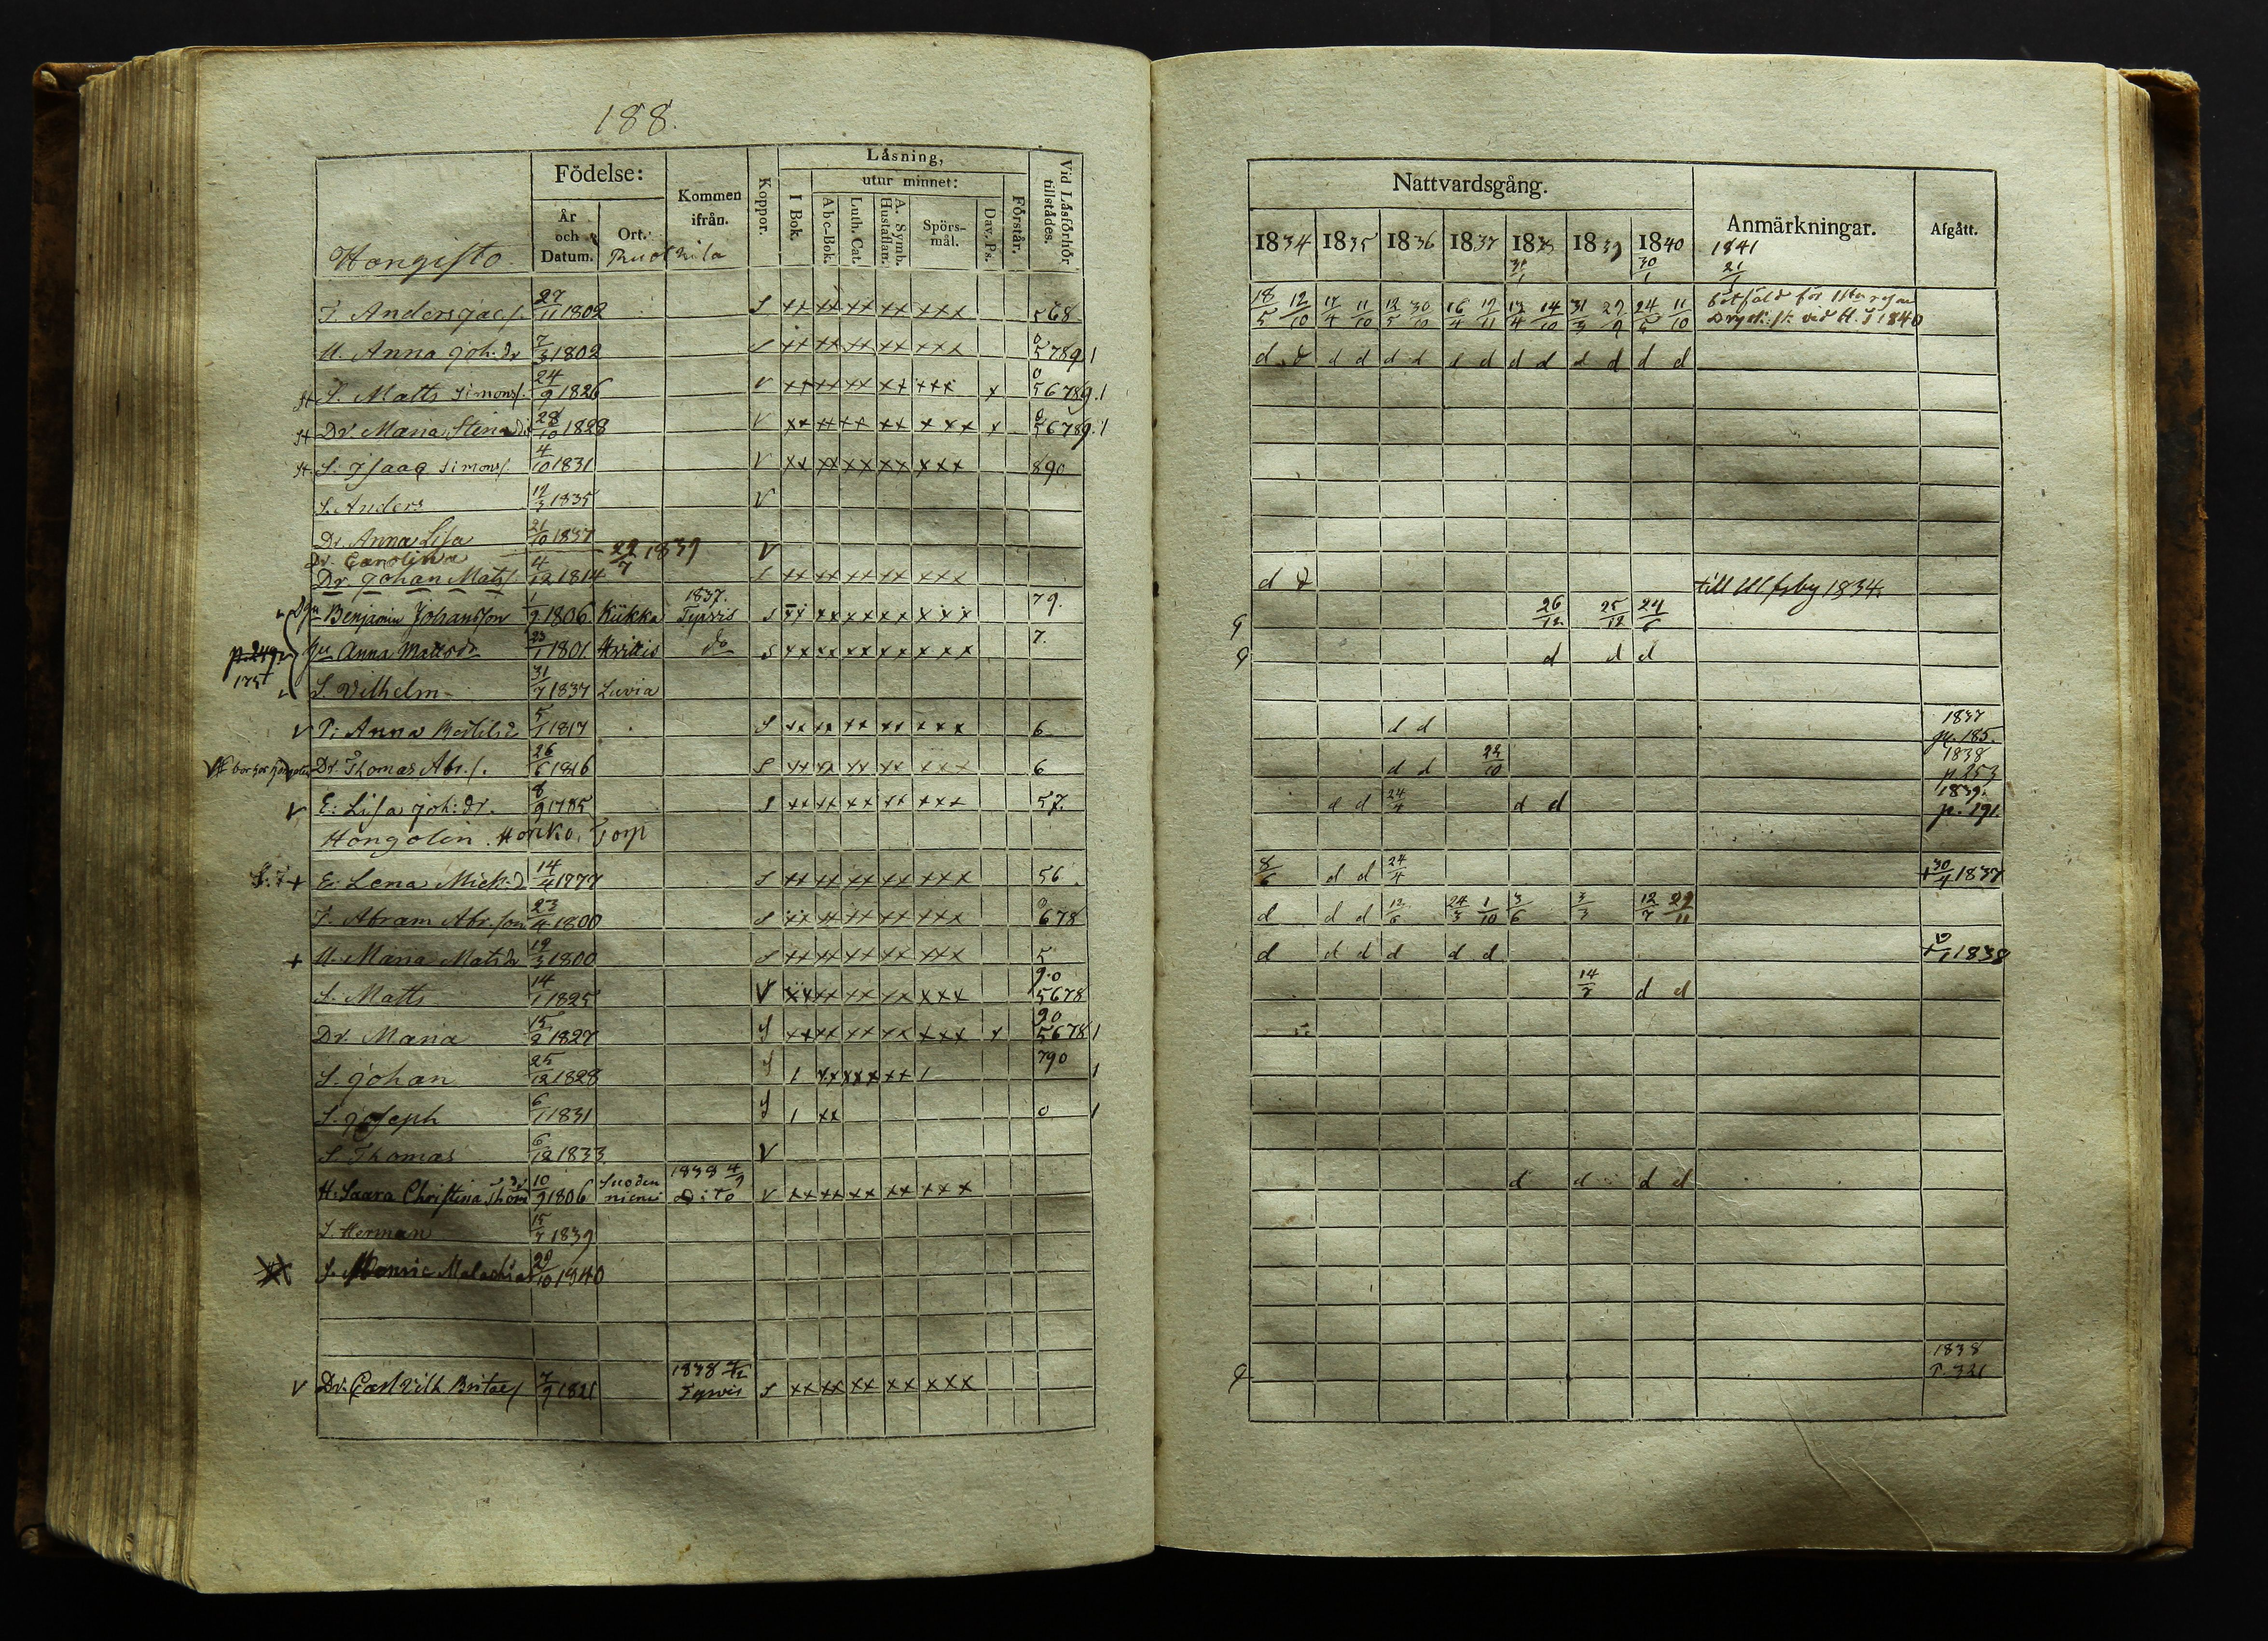 188.
Födelse:
Kommen ifrån.
Koppor.
Läsning,
utur minnet:
I Bok.
Abc-Bok.
Luth. Cat.
A. Symb. Hustaflan.
Spörs-mål.
Dav. Ps.
Förstår.
Vid Läsförhör tillstådes.
År och Datum.
Ort.
Hongisto
T. Anders Jac/. 27/11 1802 S xx xx xx xx xxx 568
M. Anna Joh. dr 7/3 1802 S xx xx xx xx xxx 0 5789 1
S. Matts Simons/. 24/9 1826 V xx xx xx xx xxx x 0 56789.1
Dr. Maria Stina 28/10 1828 V xx xx xx xx xxx x 56789.1
S. Isaaq Simons/. 4/10 1831 V xx xx xx xx xxx 890
S. Anders 12/3 1835 V
Dr. Anna Lisa 21/10 1837
Dr. Carolina 29/7 1839 V
Dr. Johan Mats/. 4/12 1814 S xx xx xx xx xxx
Benjamin Johansson 1/9 1806 Kiukka 1837. Tyrvis S xx xx xx xx xxx 79.
p. 249
Anna Matts dr 23/1 1801 do S xx xx xx xx xxx 7.
S. Vilhelm 31/7 1837 Luvia
V P: Anna 5/1 1817 S xx xx xx xx xxx 6
Dr. Thomas Abr./. 26/6 1816 S xx xx xx xx xxx 6
V E: Lisa Joh: dr. 8/9 1785 S xx xx xx xx xxx 57.
Hongolen. Honko. Torp
+ E: Lena Mich: d 14/4 1777 S xx xx xx xx xxx 56.
T. Abram Abr.son 23/4 1800 S xx xx xx xx xxx 0 678
+ M. Maria Mats dr 19/3 1800 S xx xx xx xx xxx 5
S. Matts 14/1 1825 V xx xx xx xx xxx 9.0 5678
Dr. Maria 15/2 1827 S xx xx xx xx xxx x 90 5678 1
S. Johan 25/12 1828 S 1 xx xx xx 1 790 1
S. Joseph 6/1 1831 S 1 xx 0 1
S. Thomas 6/12 1833 V
H: Saara Christina Thom dr 10/9 1806 Suodenniemi 1838 4/9 Dito V xx xx xx xx xxx
S. Herman 15/7 1839
S. Henric Malachias 29/10 1840
V Dr. Carl Vilh. 7/9 1821 1838 Tyrvis S xx xx xx xx xxx
Nattvardsgång.
Anmärkningar.
Afgått.
1834 1835 1836 1837 1838 1839 1840 1841
31/1 30/1 21/1
18/5 12/10 17/4 11/10 12/5 30/10 16/4 17/11 17/4 14/10 31/3 29/9 24/5 11/10 bötfäld för
vid H. T 1840
d d d d d d d d d d d d d d
d till Ulfsby 1834.
26/12 25/12 24/6
d d d
d d 1837 p. 185.
d d 22/10 1838 p. 253
d d 24/4 d d 1839. p. 191.
8/6 d d 24/4 + 30/4 1837
d d d 12/6 24/3 1/10 3/6 3/3 12/7 29/11
d d d d d d 1838
14/7 d d
d d d d
1838
P. 321